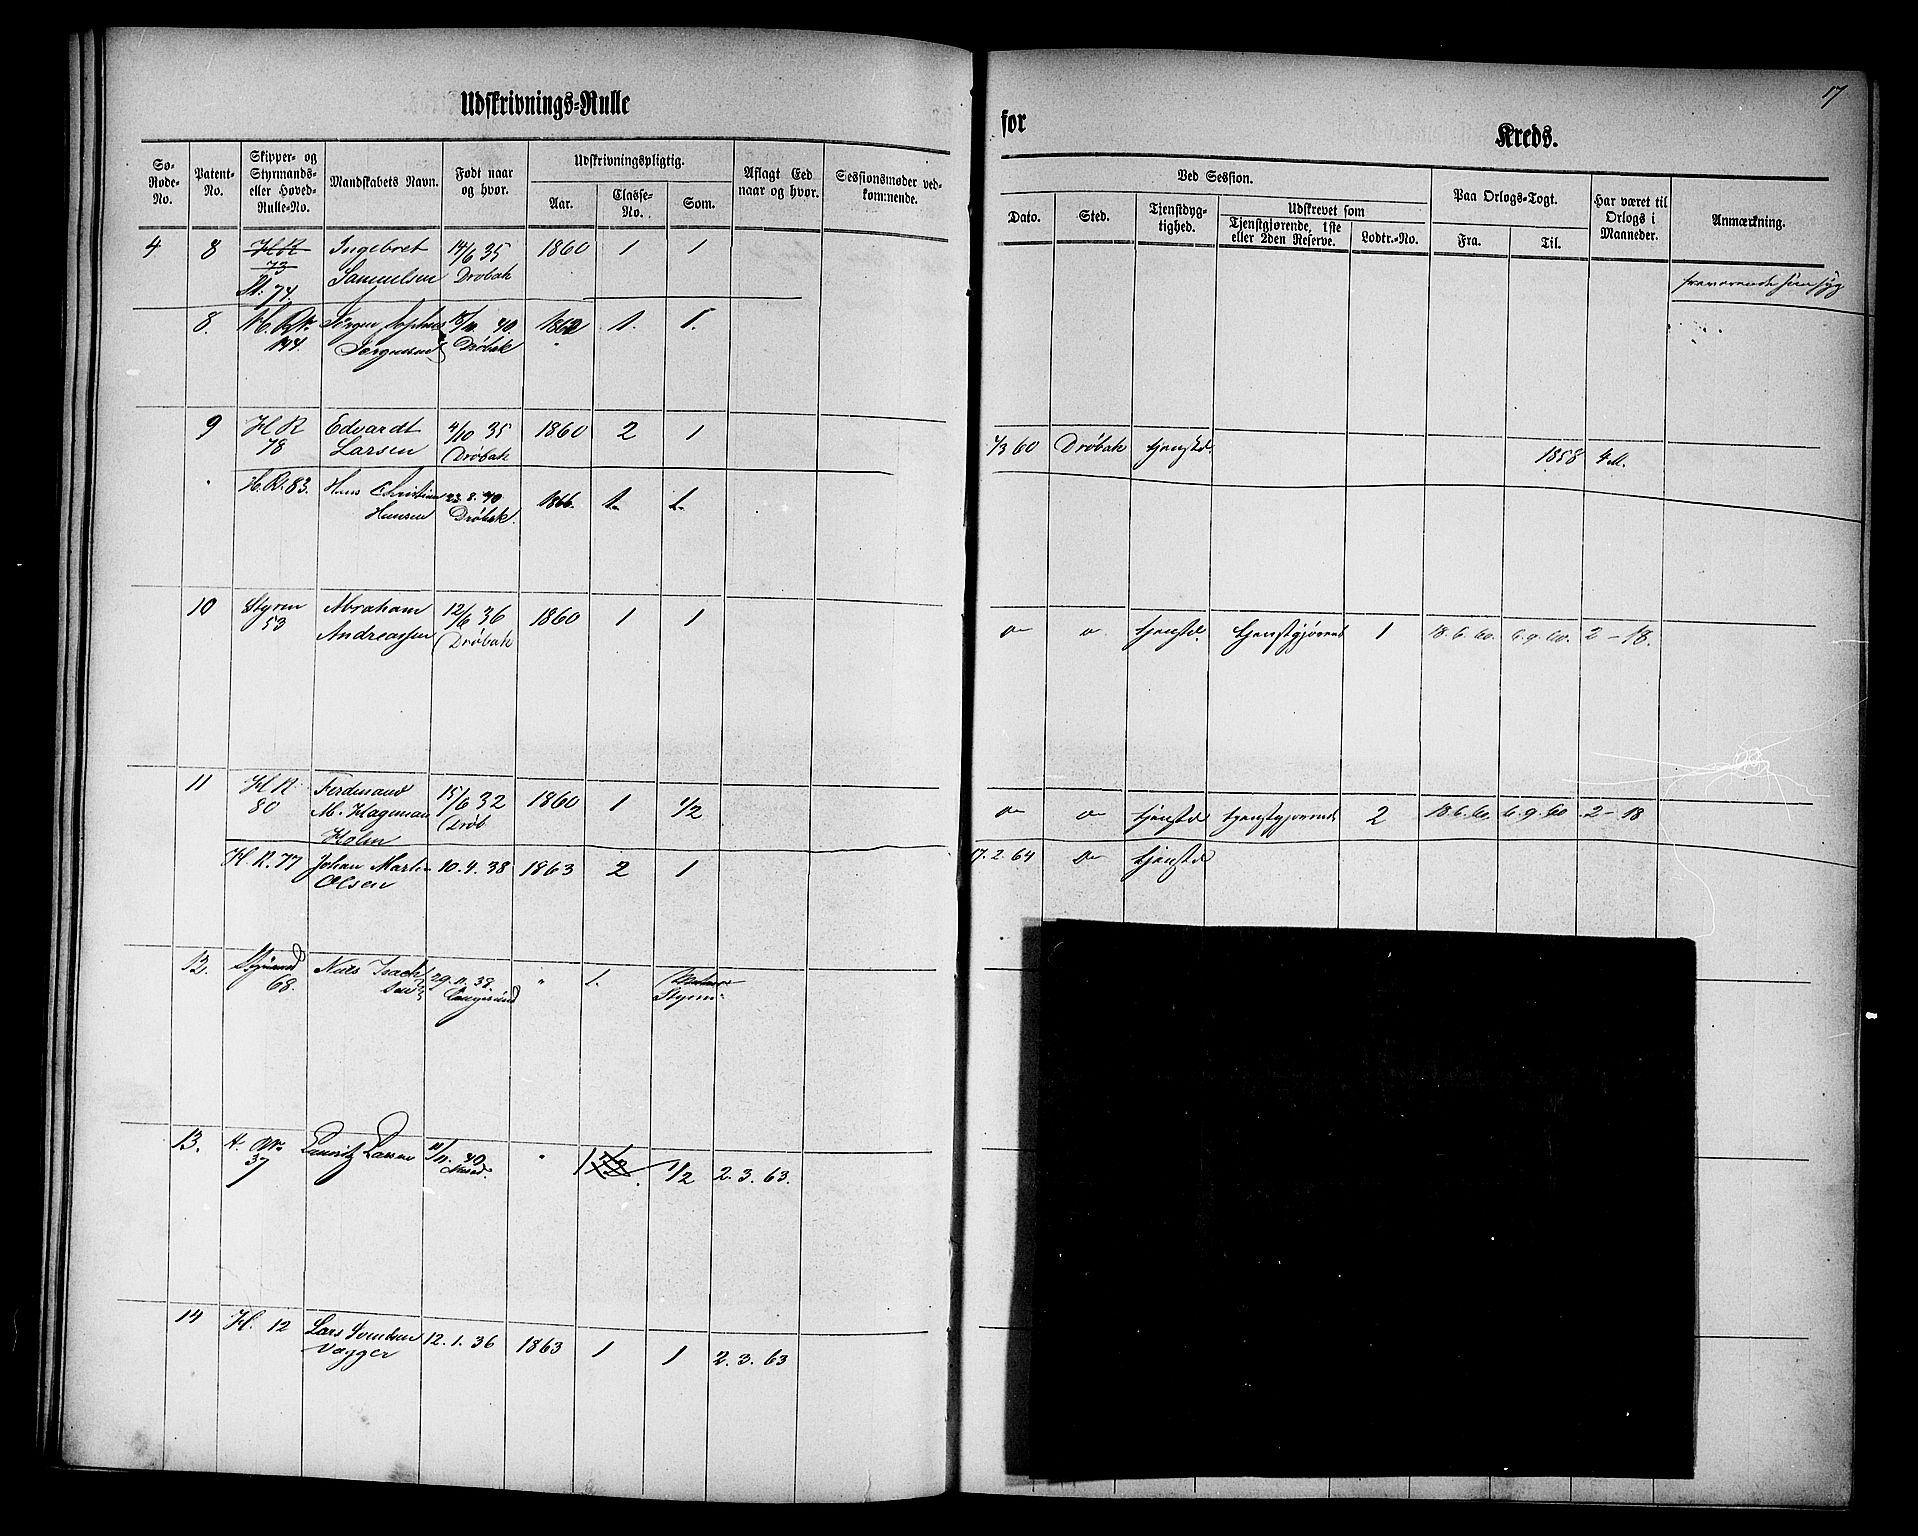 Udskrivnings-Rulle
So-Rode-No.
Patent-No.
Skipper- og Styrmands- eller Hoved-Rulle-No.
Mandskabets Navn.
Født naar og hvor.
Udskrivningspligtig.
Aar.
Classe-No.
Som.
Aflagt Eed naar og hvor.
Sessionsmøder vedkommende.
4 8 H R Ingebret 14/6 35 1860 1 1
73 Samuelsen Drøbak
St. 74.
8. H. Rr. Jørgen 40. 1862 1. 1.
144. Jørgensen Drøbak
9 H R Edvardt 4/10 35 1860 2 1
78 Larsen Drøbak
H. R. 83. Hans Christian 23. 8. 40 1866. 1. 1.
Hansen Drøbak.
10 Styrm Abraham 12/6 36 1860 1 1
53 Andreassen Drøbak
11 H R Ferdinand 15/6 32 1860 1 1/2
80 M. Hageman Drøb
Holm
H. R. 77 Johan Martin 10. 4. 38 1863 2 1
Olsen
12. Styrmd Niels Isach 29. 11. 38. " 1.
68. sen Langesund Styrm
13. H. Rr. Larsen 11/11. 40 " 1 1/2 2. 3. 63.
37
14 H. 12 Lars Svendsen 12. 1. 36 1863 1 1 2. 3. 63
Vagger
17
for
Kreds.
Ved Session.
Dato.
Sted.
Tjenstdygtighed.
Udskrevet som
Tjenstgjørende, 1ste eller 2den Reserve.
Lodtr.-No.
Paa Orlogs-Togt.
Fra.
Til.
Har været til Orlogs i Maaneder.
Anmærkning.
1/3 60 Drøbak tjenstd. 1858 4 M.
tjenstd. tjenstgjørend 1 18. 6. 60. 6. 9. 60. 2 - 18.
tjenstd tjenstgjørende 2 18. 6. 60. 6. 9. 60 2 - 18
17. 2. 64 tjenstd